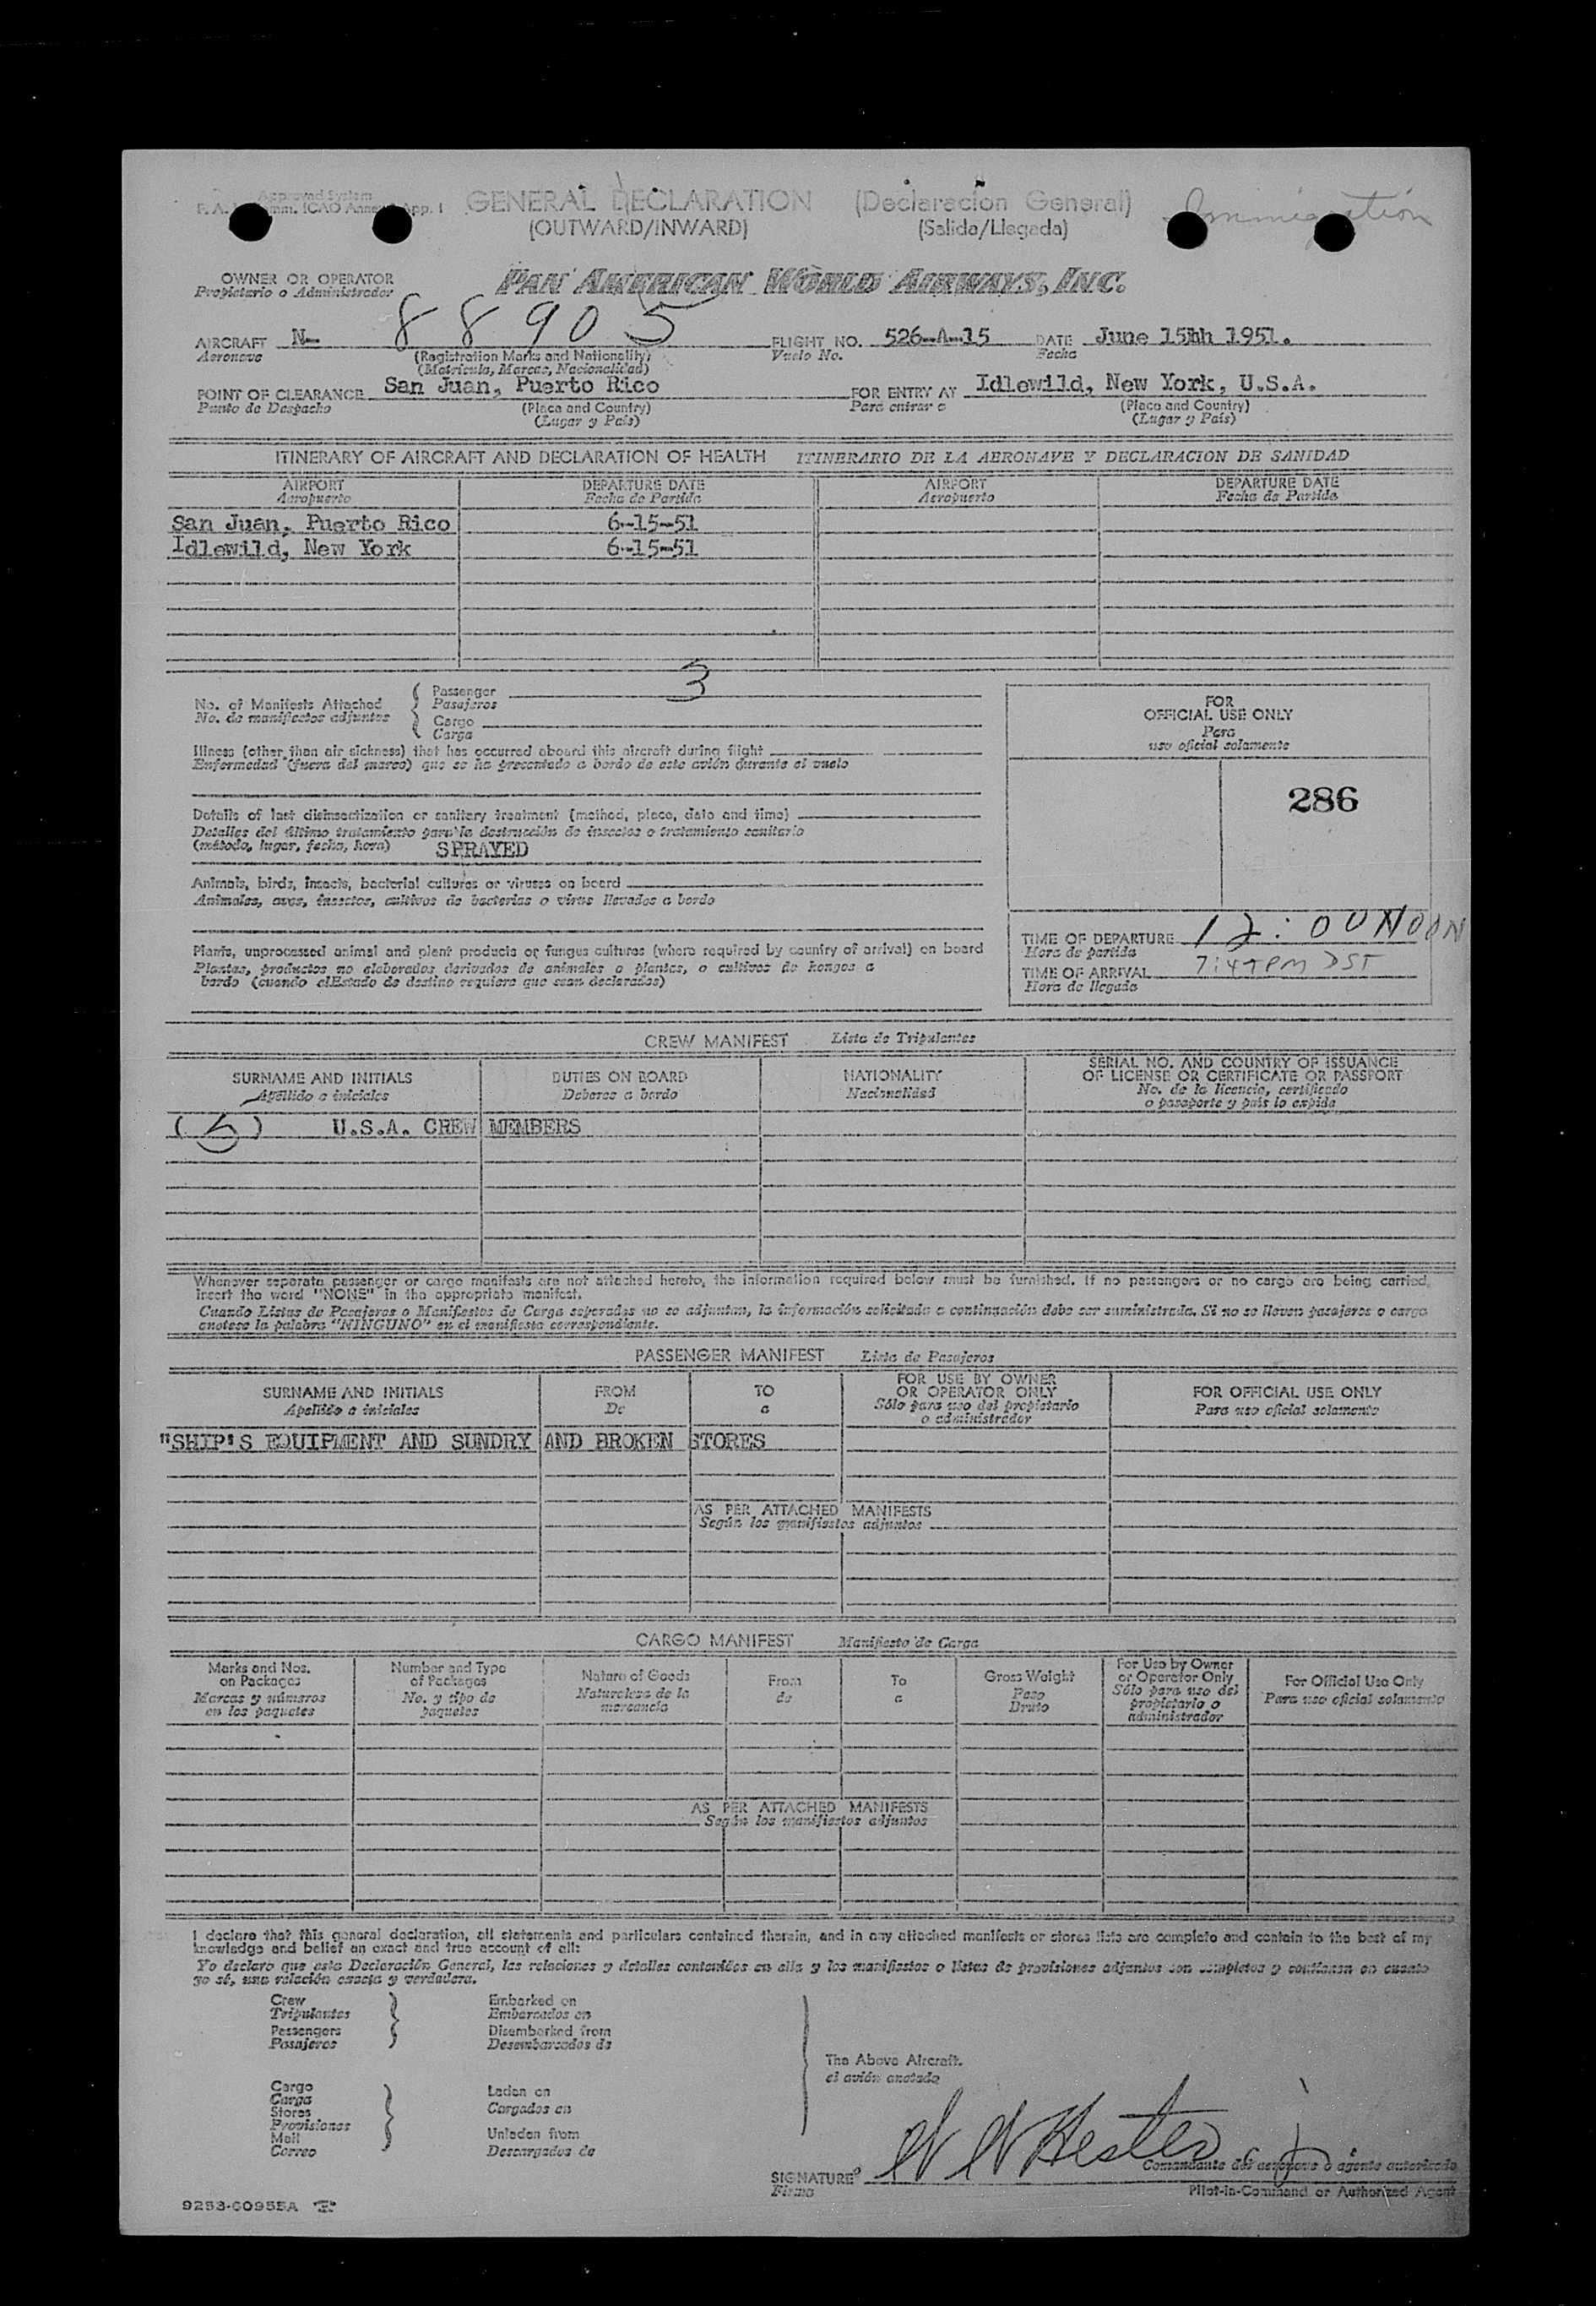 Approved System
GENERAL DECLARATION (Declaración General) Immigration
(OUTWARD/INWARD) (Salida/Llegada)
OWNER OR OPERATOR PAN AMERICAN WORLD AIRWAYS, INC.
Propietario o Administrador
AIRCRAFT N- 88905 FLIGHT NO. 526-A-15 DATE June 15hh 1951.
Aeronave (Registration Marks and Nationality) Vuelo No. Fecha
(Matrícula, Marcas, Nacionalidad)
POINT OF CLEARANCE San Juan, Puerto Rico FOR ENTRY AT Idlewild, New York, U.S.A.
Punto de Despacho (Place and Country) Para entrar a (Place and Country)
(Lugar y País) (Lugar y País)
ITINERARY OF AIRCRAFT AND DECLARATION OF HEALTH ITINERARIO DE LA AERONAVE Y DECLARACION DE SANIDAD
AIRPORT DEPARTURE DATE AIRPORT DEPARTURE DATE
Aeropuerto Fecha de Partida Aeropuerto Fecha de Partida
San Juan, Puerto Rico 6-15-51
Idlewild, New York 6-15-51
No. of Manifests Attached Passenger 3
No. de manifiestos adjuntos Pasajeros
Cargo
Carga
Illness (other than air sickness) that has occurred aboard this aircraft during flight
Enfermedad (fuera del mareo) que se ha presentado a bordo de este avión durante el vuelo
Details of last disinsectization or sanitary treatment (method, place, date and time)
Detalles del último tratamiento para la destrucción de insectos o tratamiento sanitario
(método, lugar, fecha, hora) SPRAYED
Animals, birds, insects, bacterial cultures or viruses on board
Animales, aves, insectos, cultivos de bacterias o virus llevados a bordo
Plants, unprocessed animal and plant products or fungus cultures (where required by country of arrival) on board
Plantas, productos no elaborados derivados de animales o plantas, o cultivos de hongos a
bordo (cuando elEstado de destino requiera que sean declarados)
FOR
OFFICIAL USE ONLY
Para
uso oficial solamente
286
TIME OF DEPARTURE 12:00 NOON
Hora de partida
TIME OF ARRIVAL 7:47 PM DST
Hora de llegada
CREW MANIFEST Lista de Tripulantes
SURNAME AND INITIALS DUTIES ON BOARD NATIONALITY SERIAL NO. AND COUNTRY OF ISSUANCE
OF LICENSE OR CERTIFICATE OR PASSPORT
Apellido e iniciales Deberes a bordo Nacionalidad No. de la licencia, certificado
o pasaporte y país lo expide
(5) U.S.A. CREW MEMBERS
Whenever separate passenger or cargo manifests are not attached hereto, the information required below must be furnished. If no passengers or no cargo are being carried,
insert the word "NONE" in the appropriate manifest.
Cuando Listas de Pasajeros o Manifiestos de Carga separados no se adjuntan, la información solicitada a continuación debe ser suministrada. Si no se lleven pasajeros o carga
anotese la palabra "NINGUNO" en el manifiesto correspondiente.
PASSENGER MANIFEST Lista de Pasajeros
SURNAME AND INITIALS FROM TO FOR USE BY OWNER
OR OPERATOR ONLY FOR OFFICIAL USE ONLY
Apellido e iniciales De a Sólo para uso del propietario
o administrador Para uso oficial solamente
"SHIP'S EQUIPMENT AND SUNDRY AND BROKEN STORES
AS PER ATTACHED MANIFESTS
Según los manifiestos adjuntos
CARGO MANIFEST Manifiesto de Carga
Marks and Nos.
on Packages
Marcas y números
en los paquetes
Number and Type
of Packages
No. y tipo de
paquetes
Nature of Goods
Naturaleza de la
mercancía
From
de
To
a
Gross Weight
Peso
Bruto
For Use by Owner
or Operator Only
Sólo para uso del
propietario o
administrador
For Official Use Only
Para uso oficial solamente
AS PER ATTACHED MANIFESTS
Según los manifiestos adjuntos
I declare that this general declaration, all statements and particulars contained therein, and in any attached manifests or stores lists are complete and contain to the best of my
knowledge and belief an exact and true account of all:
Yo declaro que esta Declaración General, las relaciones y detalles contenidos en ella y los manifiestos o listas de provisiones adjuntos son completos y contienen en cuanto
yo sé, una relación exacta y verdadera.
Crew
Tripulantes
Passengers
Pasajeros
Embarked on
Embarcados en
Disembarked from
Desembarcados de
Cargo
Carga
Stores
Provisiones
Mail
Correo
Laden on
Cargados en
Unladen from
Descargados de
The Above Aircraft.
el avión anotado
SIGNATURE W W Hester Jr.
Firma
Comandante del aeronave o agente autorizado
Pilot-in-Command or Authorized Agent
9253-60955A